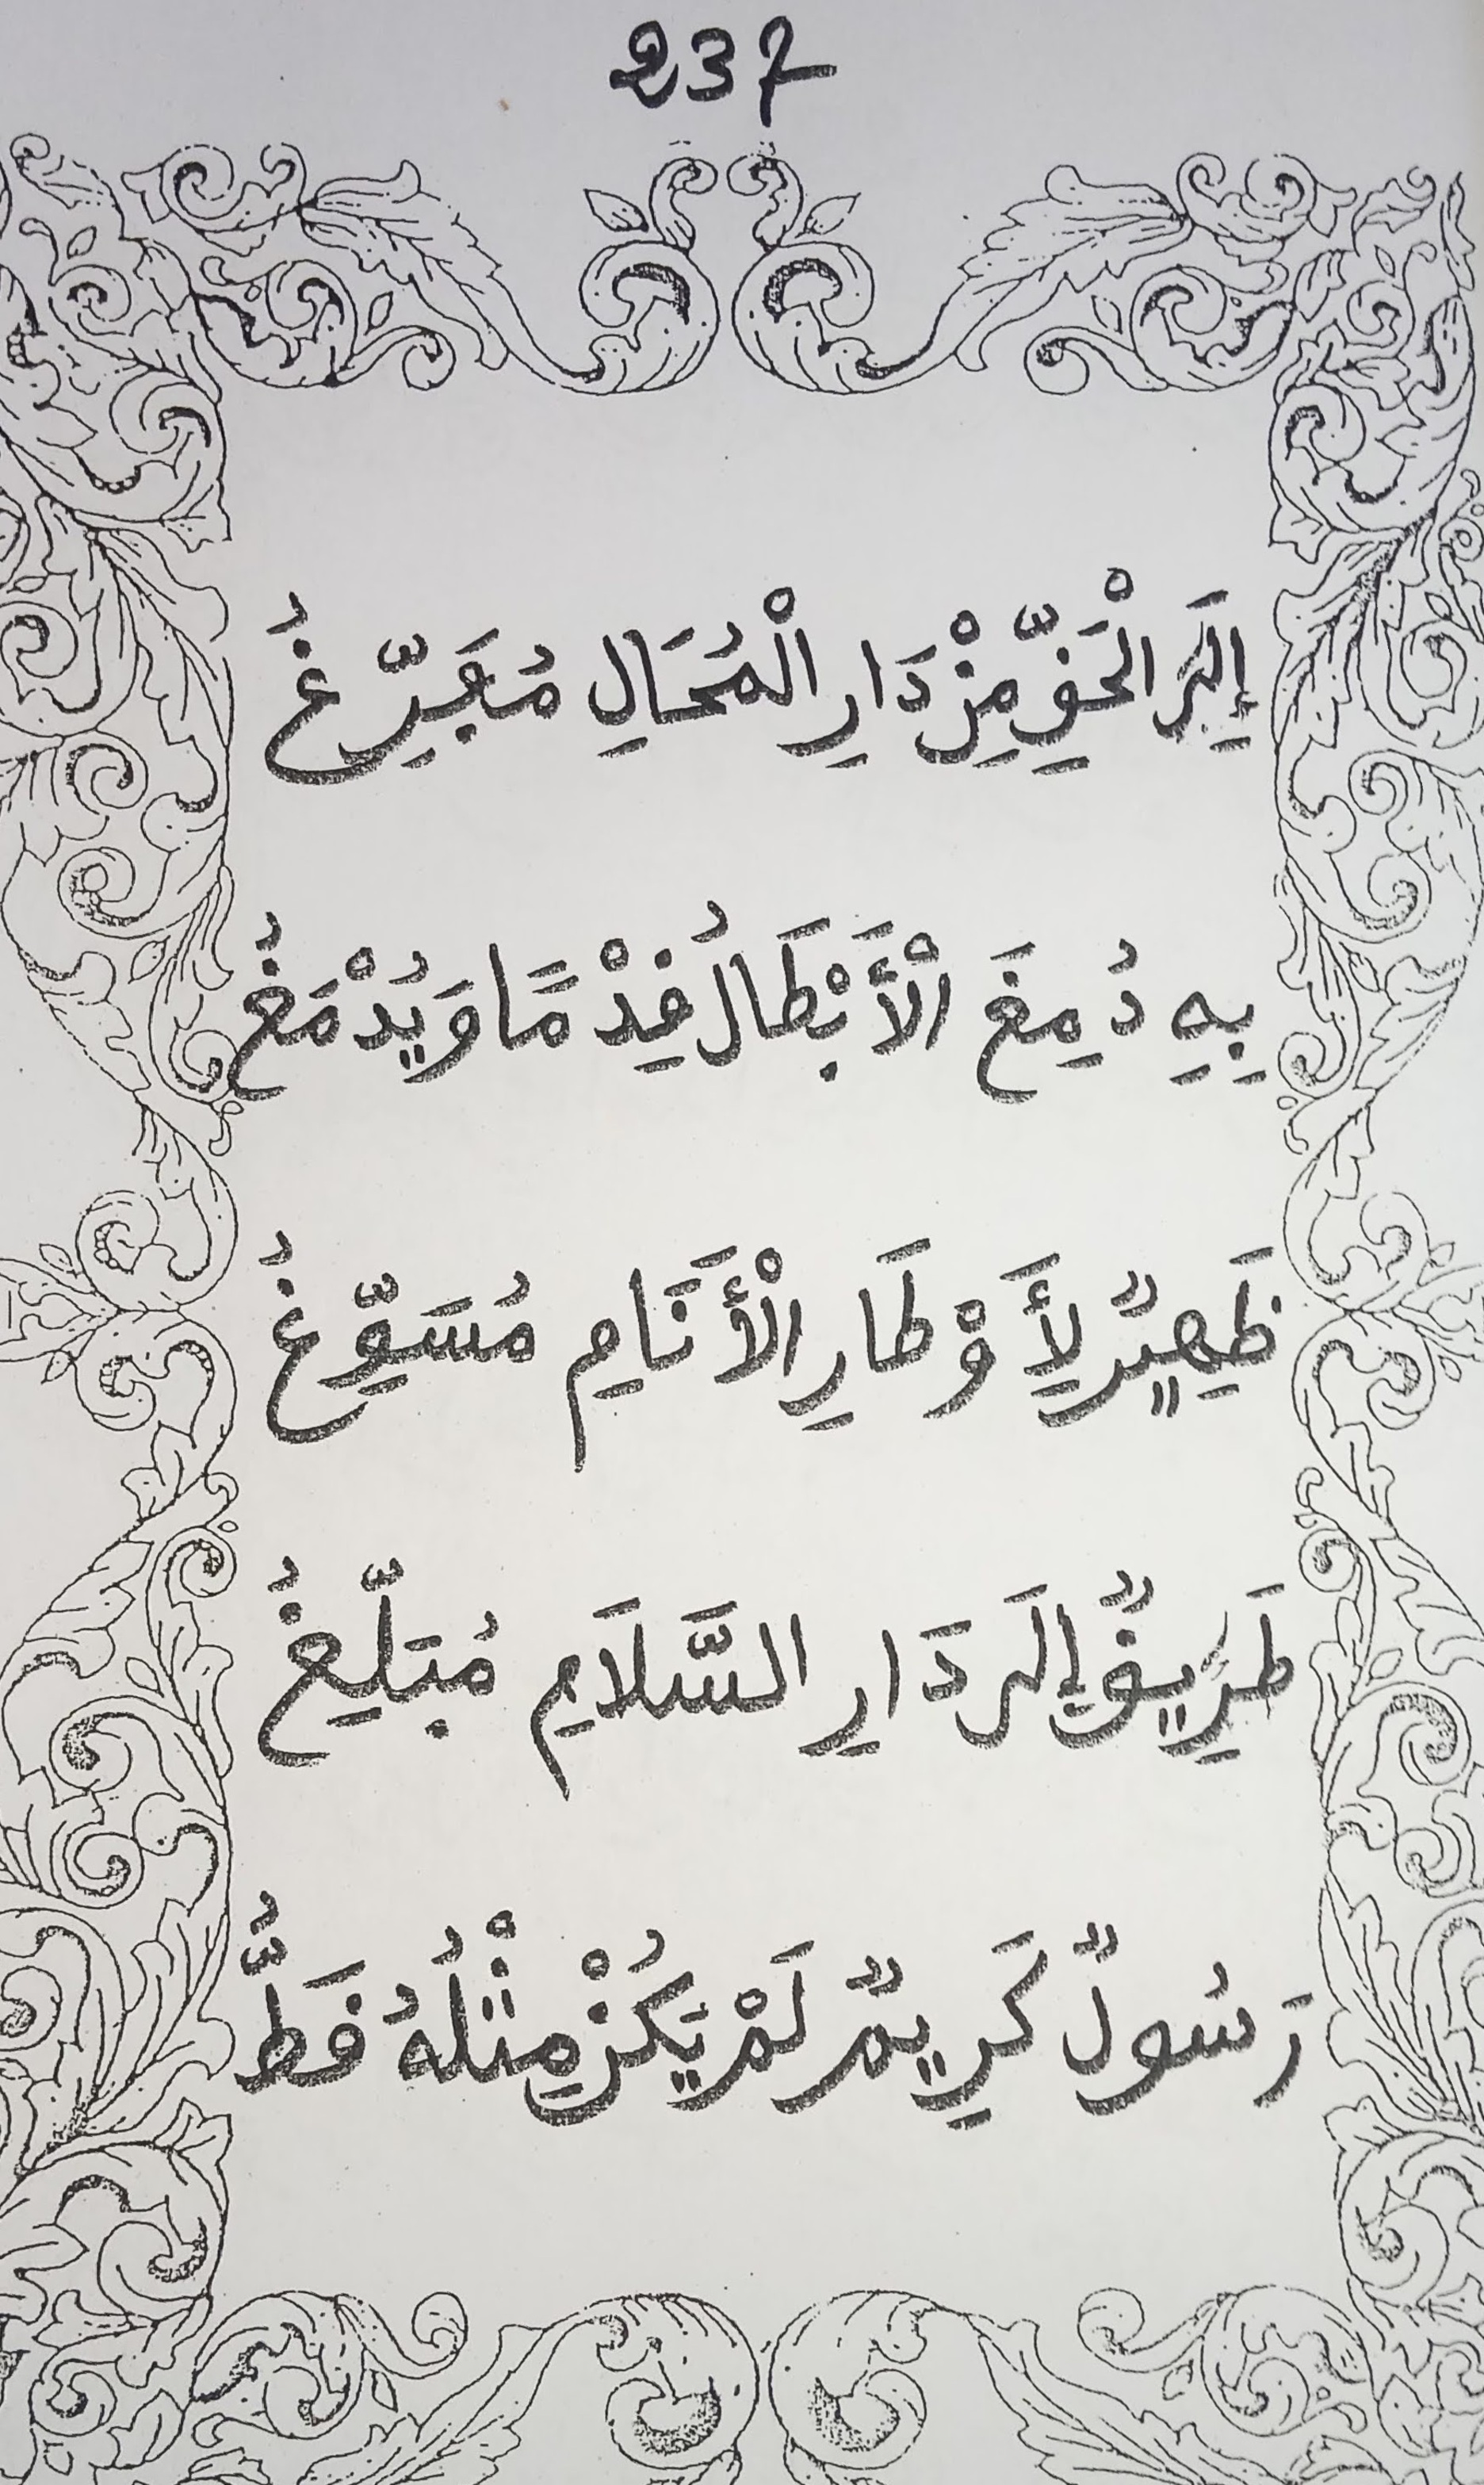 237
إِلَى الْحَقِّ مِنْ دَارِ الْمُحَالِ مُفَرِّغُ
بِهِ دُمِغَ الْأَبْطَالُ قِدْمًا وَيُدْمَغُ
ظَهِيرٌ لِأَوْطَارِ الْأَنَامِ مُسَوِّغُ
طَرِيقٌ إِلَى دَارِ السَّلَامِ مُبَلِّغُ
رَسُولٌ كَرِيمٌ لَمْ يَكُنْ مِثْلُهُ قَطُّ